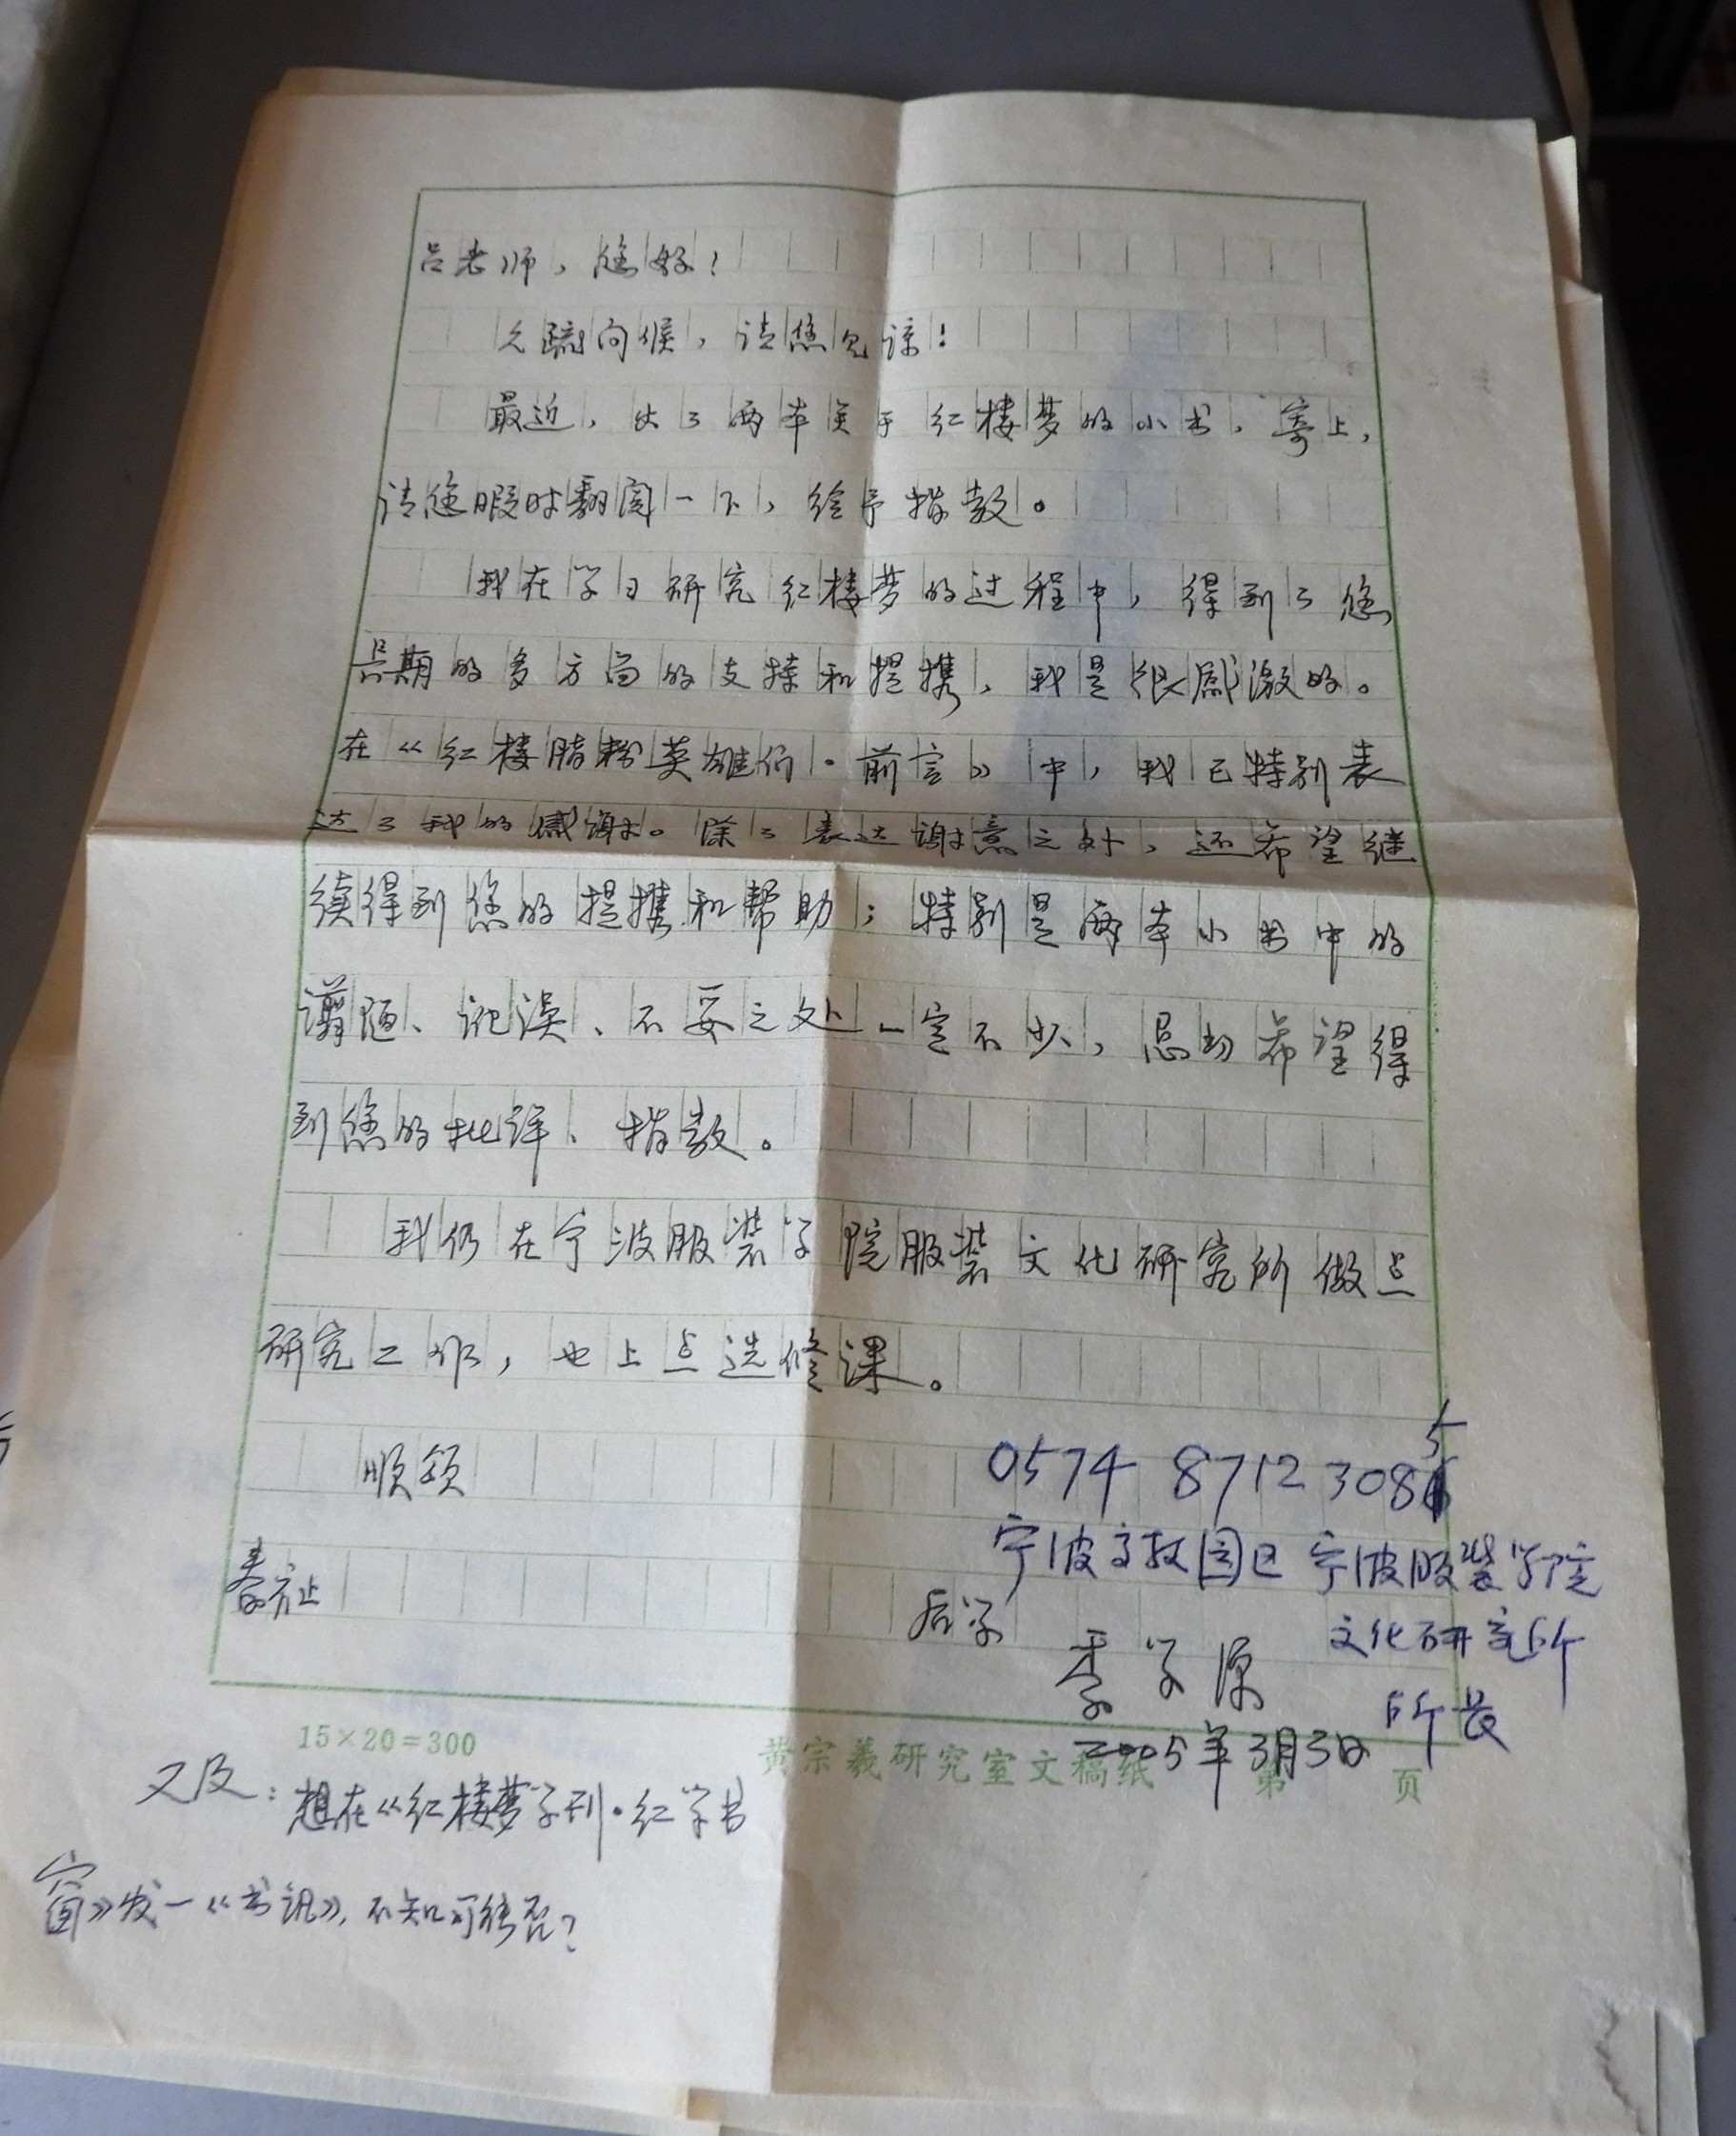 吕老师，您好！
久疏问候，请您见谅！
最近，出了两本关于红楼梦的小书，寄上，
请您暇时翻阅一下，给予指教。
我在学习研究红楼梦的过程中，得到了您
长期的多方面的支持和提携，我是很感激的。
在《红楼脂粉英雄们·前言》中，我已特别表
达了我的感谢。除了表达谢意之外，还希望继
续得到您的提携和帮助；特别是两本小书中的
谫陋、讹误、不妥之处一定不少，恳切希望得
到您的批评、指教。
我仍在宁波服装学院服装文化研究所做点
研究工作，也上点选修课。
顺颂
0574 8712 3085
春祉
宁波高教园区宁波服装学院
文化研究所
所长
后学
季学源
2005年3月3日
15×20=300
黄宗羲研究室文稿纸 第 页
又及：想在《红楼梦学刊·红学书
窗》发一《书讯》，不知可能否？